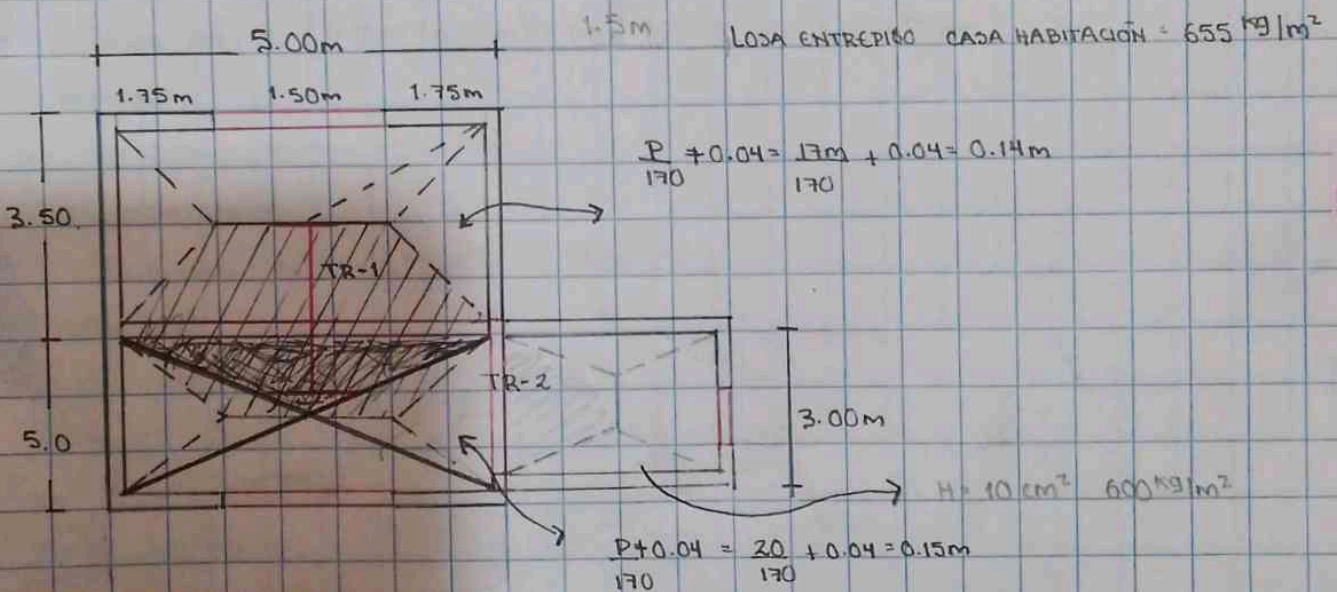 5.00m
1.5m
LOSA ENTREPISO CASA HABITACIÓN = 655 kg/m²
1.75m 1.50m 1.75m
P/170 + 0.04 = 17m/170 + 0.04 = 0.14m
3.50
TR-1
TR-2
3.00m
5.0
H= 10 cm² 600 kg/m²
P+0.04/170 = 20/170 + 0.04 = 0.15m